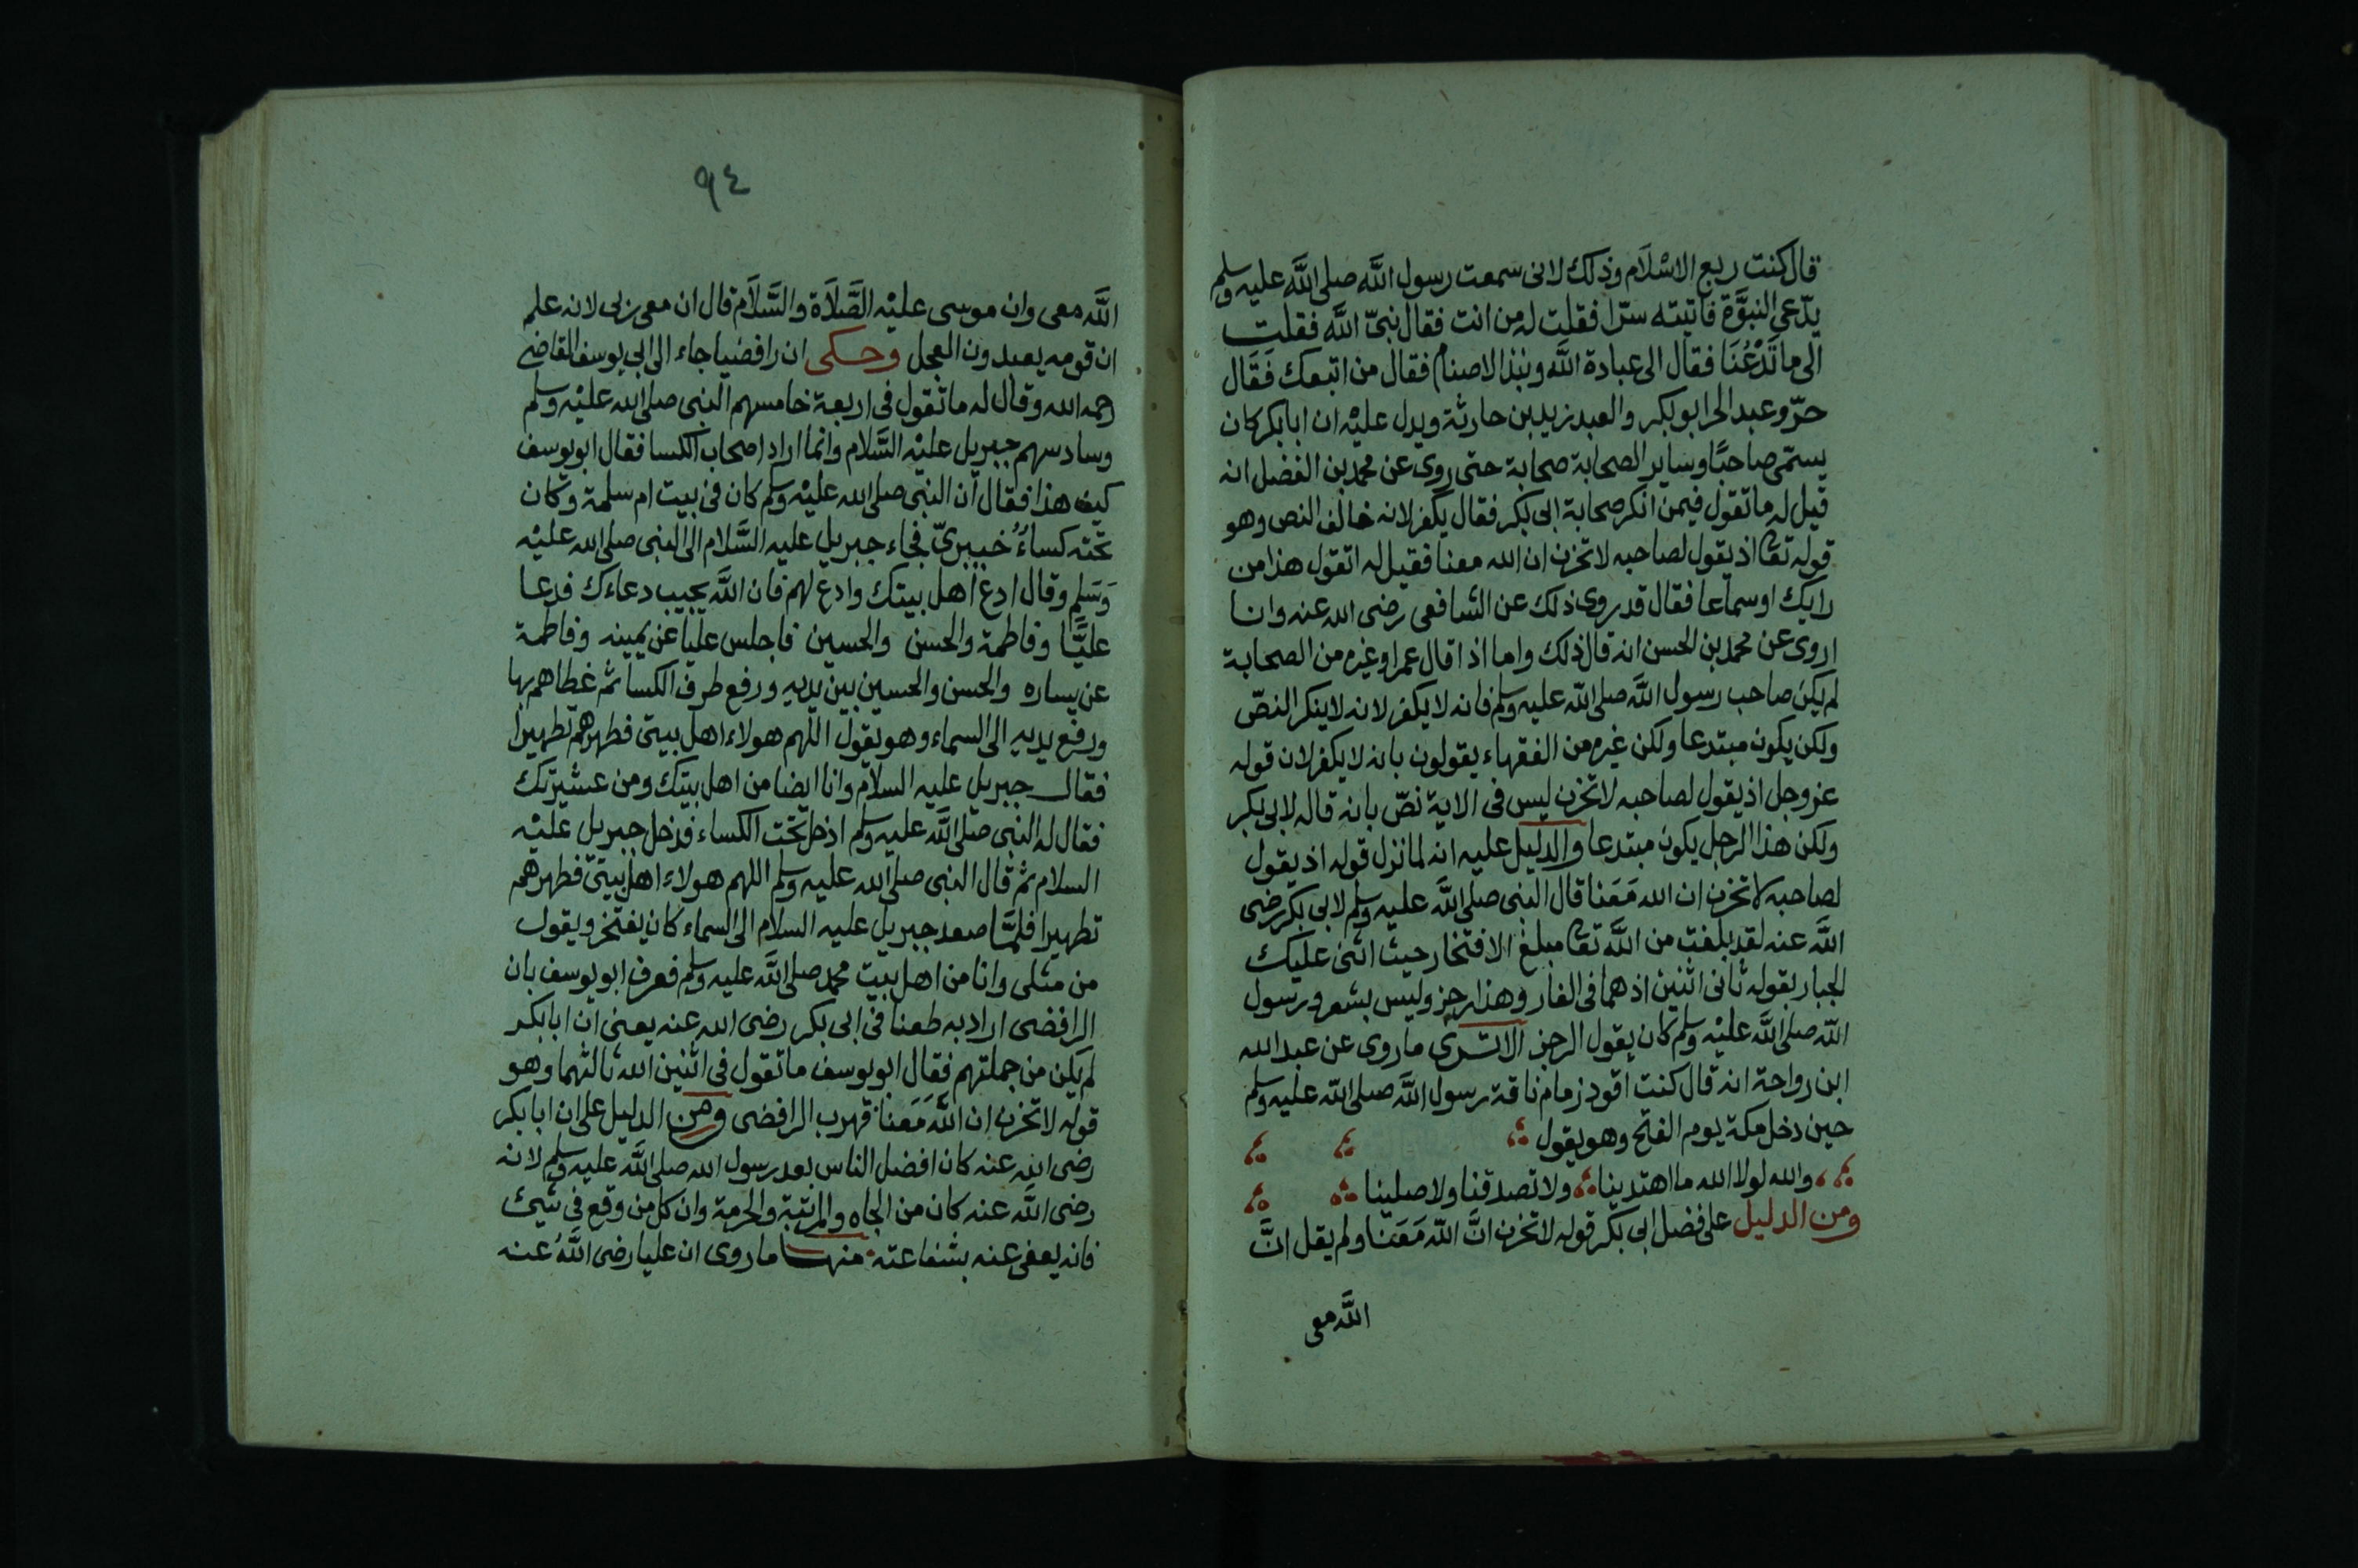 قال كنت ربع الاسْلَام وذلك لانى سمعت رسول اللَّه صلى اللَّه عليه وسلم
يدّعى النبوَّة فاتيته سرّا فقلت له من انت فقال نبىّ اللَّه فقلت
الى ما تَدْعُنَا فقال الى عبادة اللَّه ونبذ الاصنام فقال من اتبعك فَقَال
حرّ وعبد الحر ابو بكر والعبد زيد بن حارثة ويدل عليْه ان ابا بكر كان
يسمّى صاحبًا وساير الصحابة صحابة حتى روى عن محمد بن الفضل انه
قيل له ما تقول فيمن انكر صحابة ابى بكر فقال يكفر لانه خالف النص وهو
قوله تعا اذ يقول لصاحبه لا تحزن ان الله معنا فقيل له اتقول هذا من
رايك او سماعا فقال قد روى ذلك عن الشافعى رضى الله عنه وانا
اروى عن محمد بن الحسن انه قال ذلك واما اذا قال عمر او غيره من الصحابة
لم يكن صاحب رسول اللَّه صلى اللّه عليه وسلم فانه لا يكفر لانه لا ينكر النصّ
ولكن يكون مبتدعا ولكن غيره من الفقهاء يقولون بانه لا يكفر لان قوله
عز وجل اذ يقول لصاحبه لا تحزن ليس فى الاية نصّ بانه قاله لابى بكر
ولكن هذا الرجل يكون مبتدعا والدليل عليه انه لما نزل قوله اذ يقول
لصاحبه لا تحزن ان الله مَعَنا قال النبى صلى اللَّه عليه وسلم لابى بكر رضى
اللَّه عنه لقد بلغت من اللَّه تعا مبلغ الافتخار حيث اثنى عليك
الجبار بقوله ثانى اثنين اذ هما فى الغار وهذا رجز وليس بشعر ورسول
اللّه صلى اللَّه عليْه وسلم كان يقول الرجز الا ترى ما روى عن عبد الله
ابن رواحة انه قال كنت اقود زمام ناقة رسول اللَّه صلى اللّه عليه وسلم
حين دخل مكة يوم الفتح وهو يقول
والله لولا الله ما اهتدينا ولا تصدقنا ولا صلينا
ومن الدليل على فضل ابى بكر قوله لا تحزن انَّ اللّه مَعَنَا ولم يقل انَّ
اللَّه معى
٩٤
اللَّه معى وان موسى عليْه الصَّلَاة والسَّلَام قال ان معى ربى لانه علم
ان قومه يعبدون العجل وحكى ان رافضيا جاء الى ابى يوسف القاضى
رحمه الله وقال له ما تقول فى اربعة خامسهم النبى صلى الله عليْه وسلم
وسادسهم جبريل عليْه السَّلام وانما اراد اصحاب الكسا فقال ابو يوسف
كيف هذا فقال ان النبى صلى الله عليْه وسلم كان فى بيت ام سلمة وكان
تحته كساءُ خيبرىّ فجاء جبريل عليه السَّلام الى النبى صلى الله عليْه
وَسَلم وقال ادع اهل بيتك وادع لهم فان اللَّه يجيب دعاءك فدعا
عليًّا وفاطمة والحسن والحسين فاجلس عليا عن يمينه وفاطمة
عن يساره والحسن والحسين بين يديه ورفع طرف الكسا ثم غطاهم بها
ورفع يديه الى السماء وهو يقول اللهم هولاء اهل بيتى فطهرهم تطهيرا
فقال جبريل عليه السلام وانا ايضا من اهل بيتك ومن عشيرتك
فقال له النبى صلى اللَّه عليه وسلم ادخل تحت الكساء فدخل جبريل عليْه
السلام ثم قال النبى صلى الله عليه وسلم اللهم هولاء اهل بيتى فطهرهم
تطهيرا فلمَّا صعد جبريل عليه السلام الى السماء كان يفتخر ويقول
من مثلى وانا من اهل بيت محمد صلى اللَّه عليه وسلم فعرف ابو يوسف بان
الرافضى اراد به طعنا فى ابى بكر رضى الله عنه يعنى ان ابا بكر
لم يكن من جملتهم فقال ابو يوسف ما تقول فى اثنين الله ثالثهما وهو
قوله لا تحزن ان اللَّه مَعَنا فهرب الرافضى ومن الدليل على ان ابا بكر
رضى الله عنه كان افضل الناس بعد رسول الله صلى اللَّه عليه وسلم لانه
رضى اللَّه عنه كان من الجاه والمرتبة والحرمة وان كل من وقع فى شيئ
فانه يعفى عنه بشفاعته منها ما روى ان عليا رضى اللَّهُ عنه